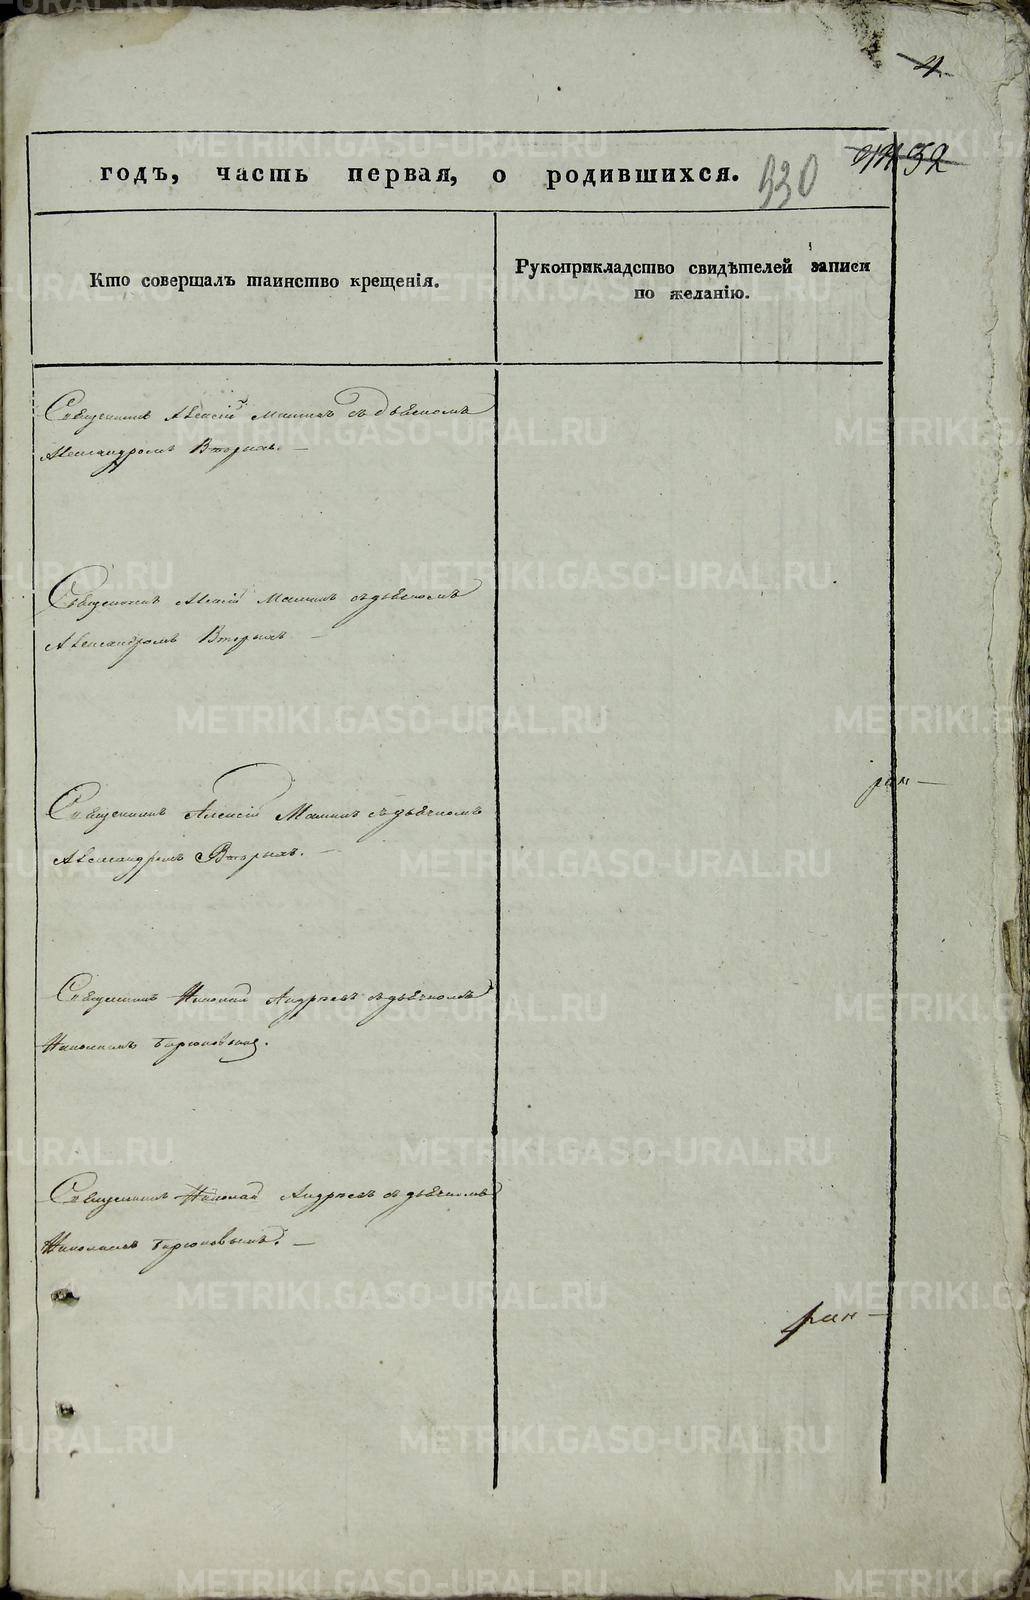 4
годъ, часть первая, о родившихся.
330
Кто совершалъ таинство крещенія.
Рукоприкладство свидѣтелей записи
по желанію.
Священникъ Алексій Маминъ съ дьячкомъ
Александромъ Вторыхъ. —
Священникъ Алексій Маминъ съ дьячкомъ
Александромъ Вторыхъ —
Священникъ Алексій Маминъ съ дьячкомъ
Александромъ Вторыхъ. —
Священникъ Николай Андреевъ съ дьячкомъ
Николаемъ
Священникъ Николай Андреевъ съ дьячкомъ
Николаемъ
METRIKI.GASO-URAL.RU